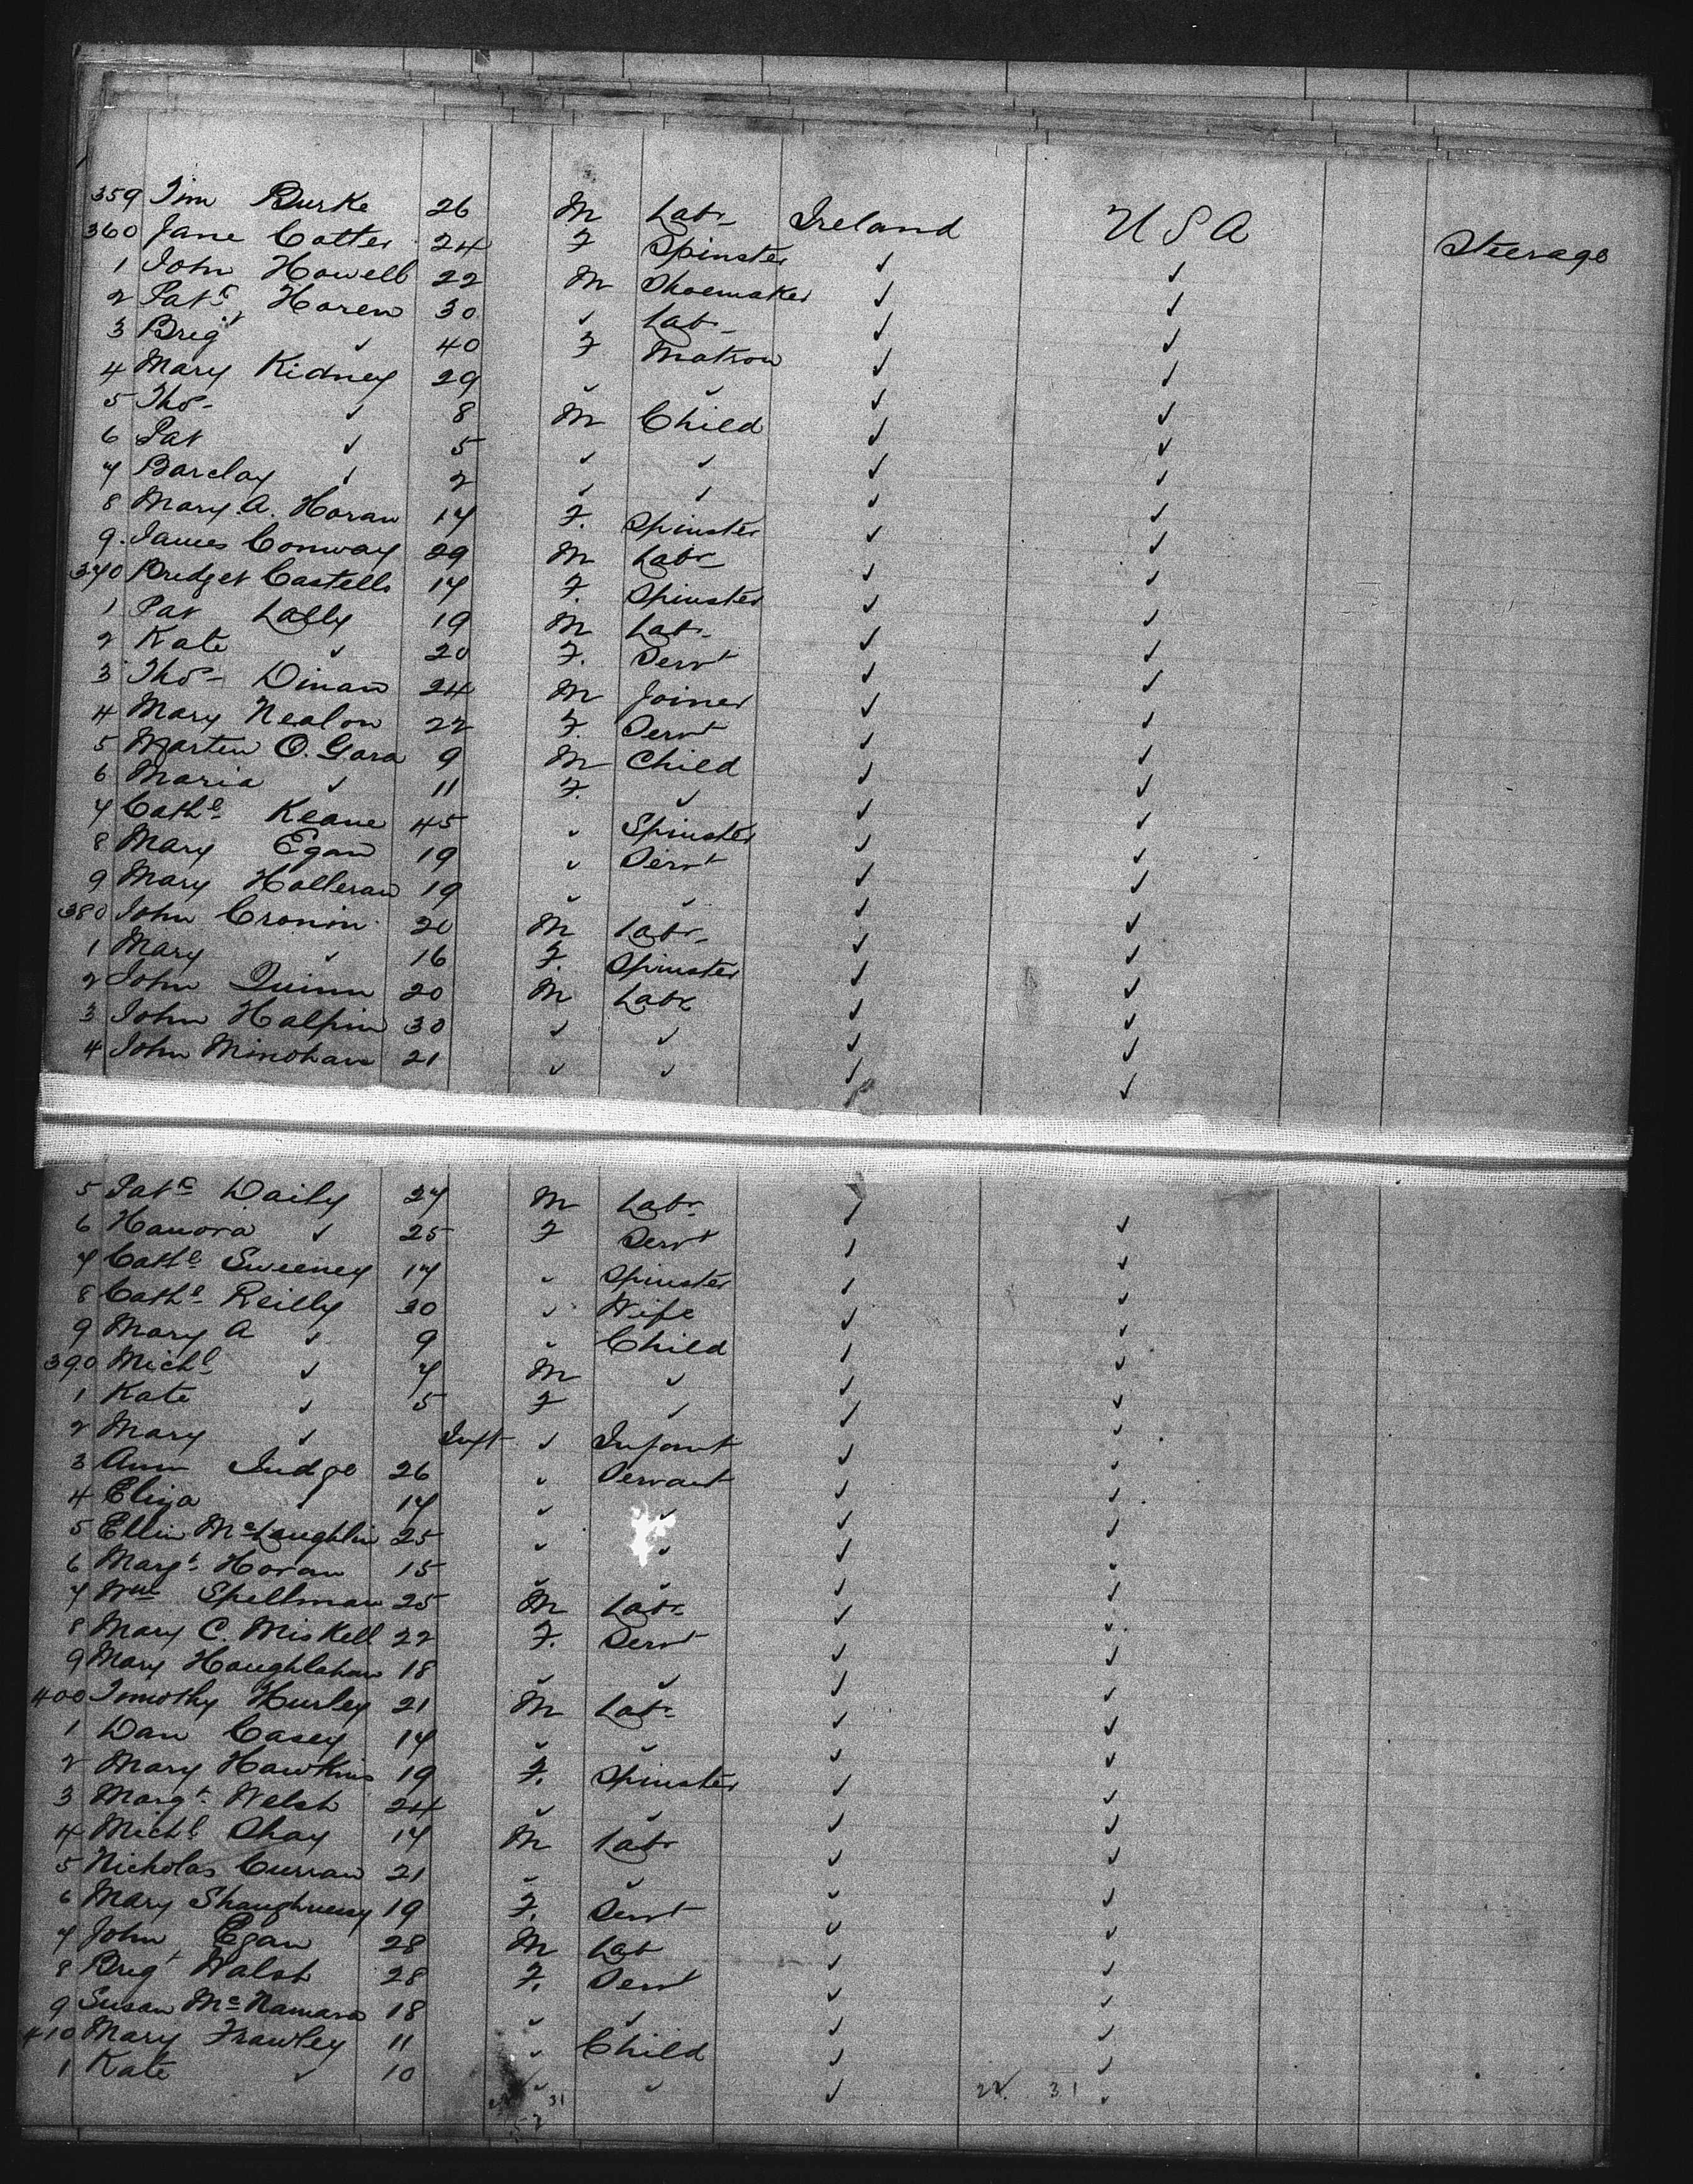 359 Tim Burke 26 M Labr Ireland U S A Steerage
360 Jane Cotter 24 F Spinster ✓ ✓
1 John Howell 22 M Shoemaker ✓ ✓
2 Patk Horen 30 ✓ Labr ✓ ✓
3 Brigt ✓ 40 F Matron ✓ ✓
4 Mary Kidney 29 ✓ ✓ ✓ ✓
5 Thos ✓ 8 M Child ✓ ✓
6 Pat ✓ 5 ✓ ✓ ✓ ✓
7 Barclay ✓ 2 ✓ ✓ ✓ ✓
8 Mary A. Horan 17 F. Spinster ✓ ✓
9. James Conway 29 M Labr ✓ ✓
370 Bridget Castello 17 F. Spinster ✓ ✓
1 Pat Lally 19 M Labr ✓ ✓
2 Kate ✓ 20 F. Servt ✓ ✓
3 Thos Dinan 24 M Joiner ✓ ✓
4 Mary Nealon 22 F. Servt ✓ ✓
5 Martin O. Gara 9 M Child ✓ ✓
6 Maria ✓ 11 F. ✓ ✓ ✓
7 Cathe Keane 45 ✓ Spinster ✓ ✓
8 Mary Egan 19 ✓ Servt ✓ ✓
9 Mary Halleran 19 ✓ ✓ ✓ ✓
380 John Cronin 20 M Labr ✓ ✓
1 Mary ✓ 16 F. Spinster ✓ ✓
2 John Quinn 20 M Labr ✓ ✓
3 John Halpin 30 ✓ ✓ ✓ ✓
4 John Minohan 21 ✓ ✓ ✓ ✓
5 Patk Daily 27 M Labr ✓ ✓
6 Hanora ✓ 25 F Servt ✓ ✓
7 Cathe Sweeney 17 ✓ Spinster ✓ ✓
8 Cathe Reilly 30 ✓ Wife ✓ ✓
9 Mary A ✓ 9 ✓ Child ✓ ✓
390 Michl ✓ 7 M ✓ ✓ ✓
1 Kate ✓ 5 F ✓ ✓ ✓
2 Mary ✓ Inft ✓ Infant ✓ ✓
3 Ann Judge 26 ✓ Servant ✓ ✓
4 Eliza ✓ 17 ✓ ✓ ✓ ✓
5 Ellen McLaughlin 25 ✓ ✓ ✓ ✓
6 Margt Horan 15 ✓ ✓ ✓ ✓
7 Wm Spellman 25 M Labr ✓ ✓
8 Mary C. Miskell 22 F. Servt ✓ ✓
9 Mary 18 ✓ ✓ ✓ ✓
400 Timothy Hurley 21 M Labr ✓ ✓
1 Dan Casey 17 ✓ ✓ ✓ ✓
2 Mary Hawkins 19 F. Spinster ✓ ✓
3 Margt Welsh 24 ✓ ✓ ✓ ✓
4 Michl Shay 17 M Labr ✓ ✓
5 Nicholas Curran 21 ✓ ✓ ✓ ✓
6 Mary Shaughnessy 19 F. Servt ✓ ✓
7 John Egan 28 M Lab ✓ ✓
8 Brigt Walsh 28 F. Servt ✓ ✓
9 Susan McNamara 18 ✓ ✓ ✓ ✓
410 Mary Frawley 11 ✓ Child ✓ ✓
1 Kate ✓ 10 ✓ ✓ ✓ ✓
31 31